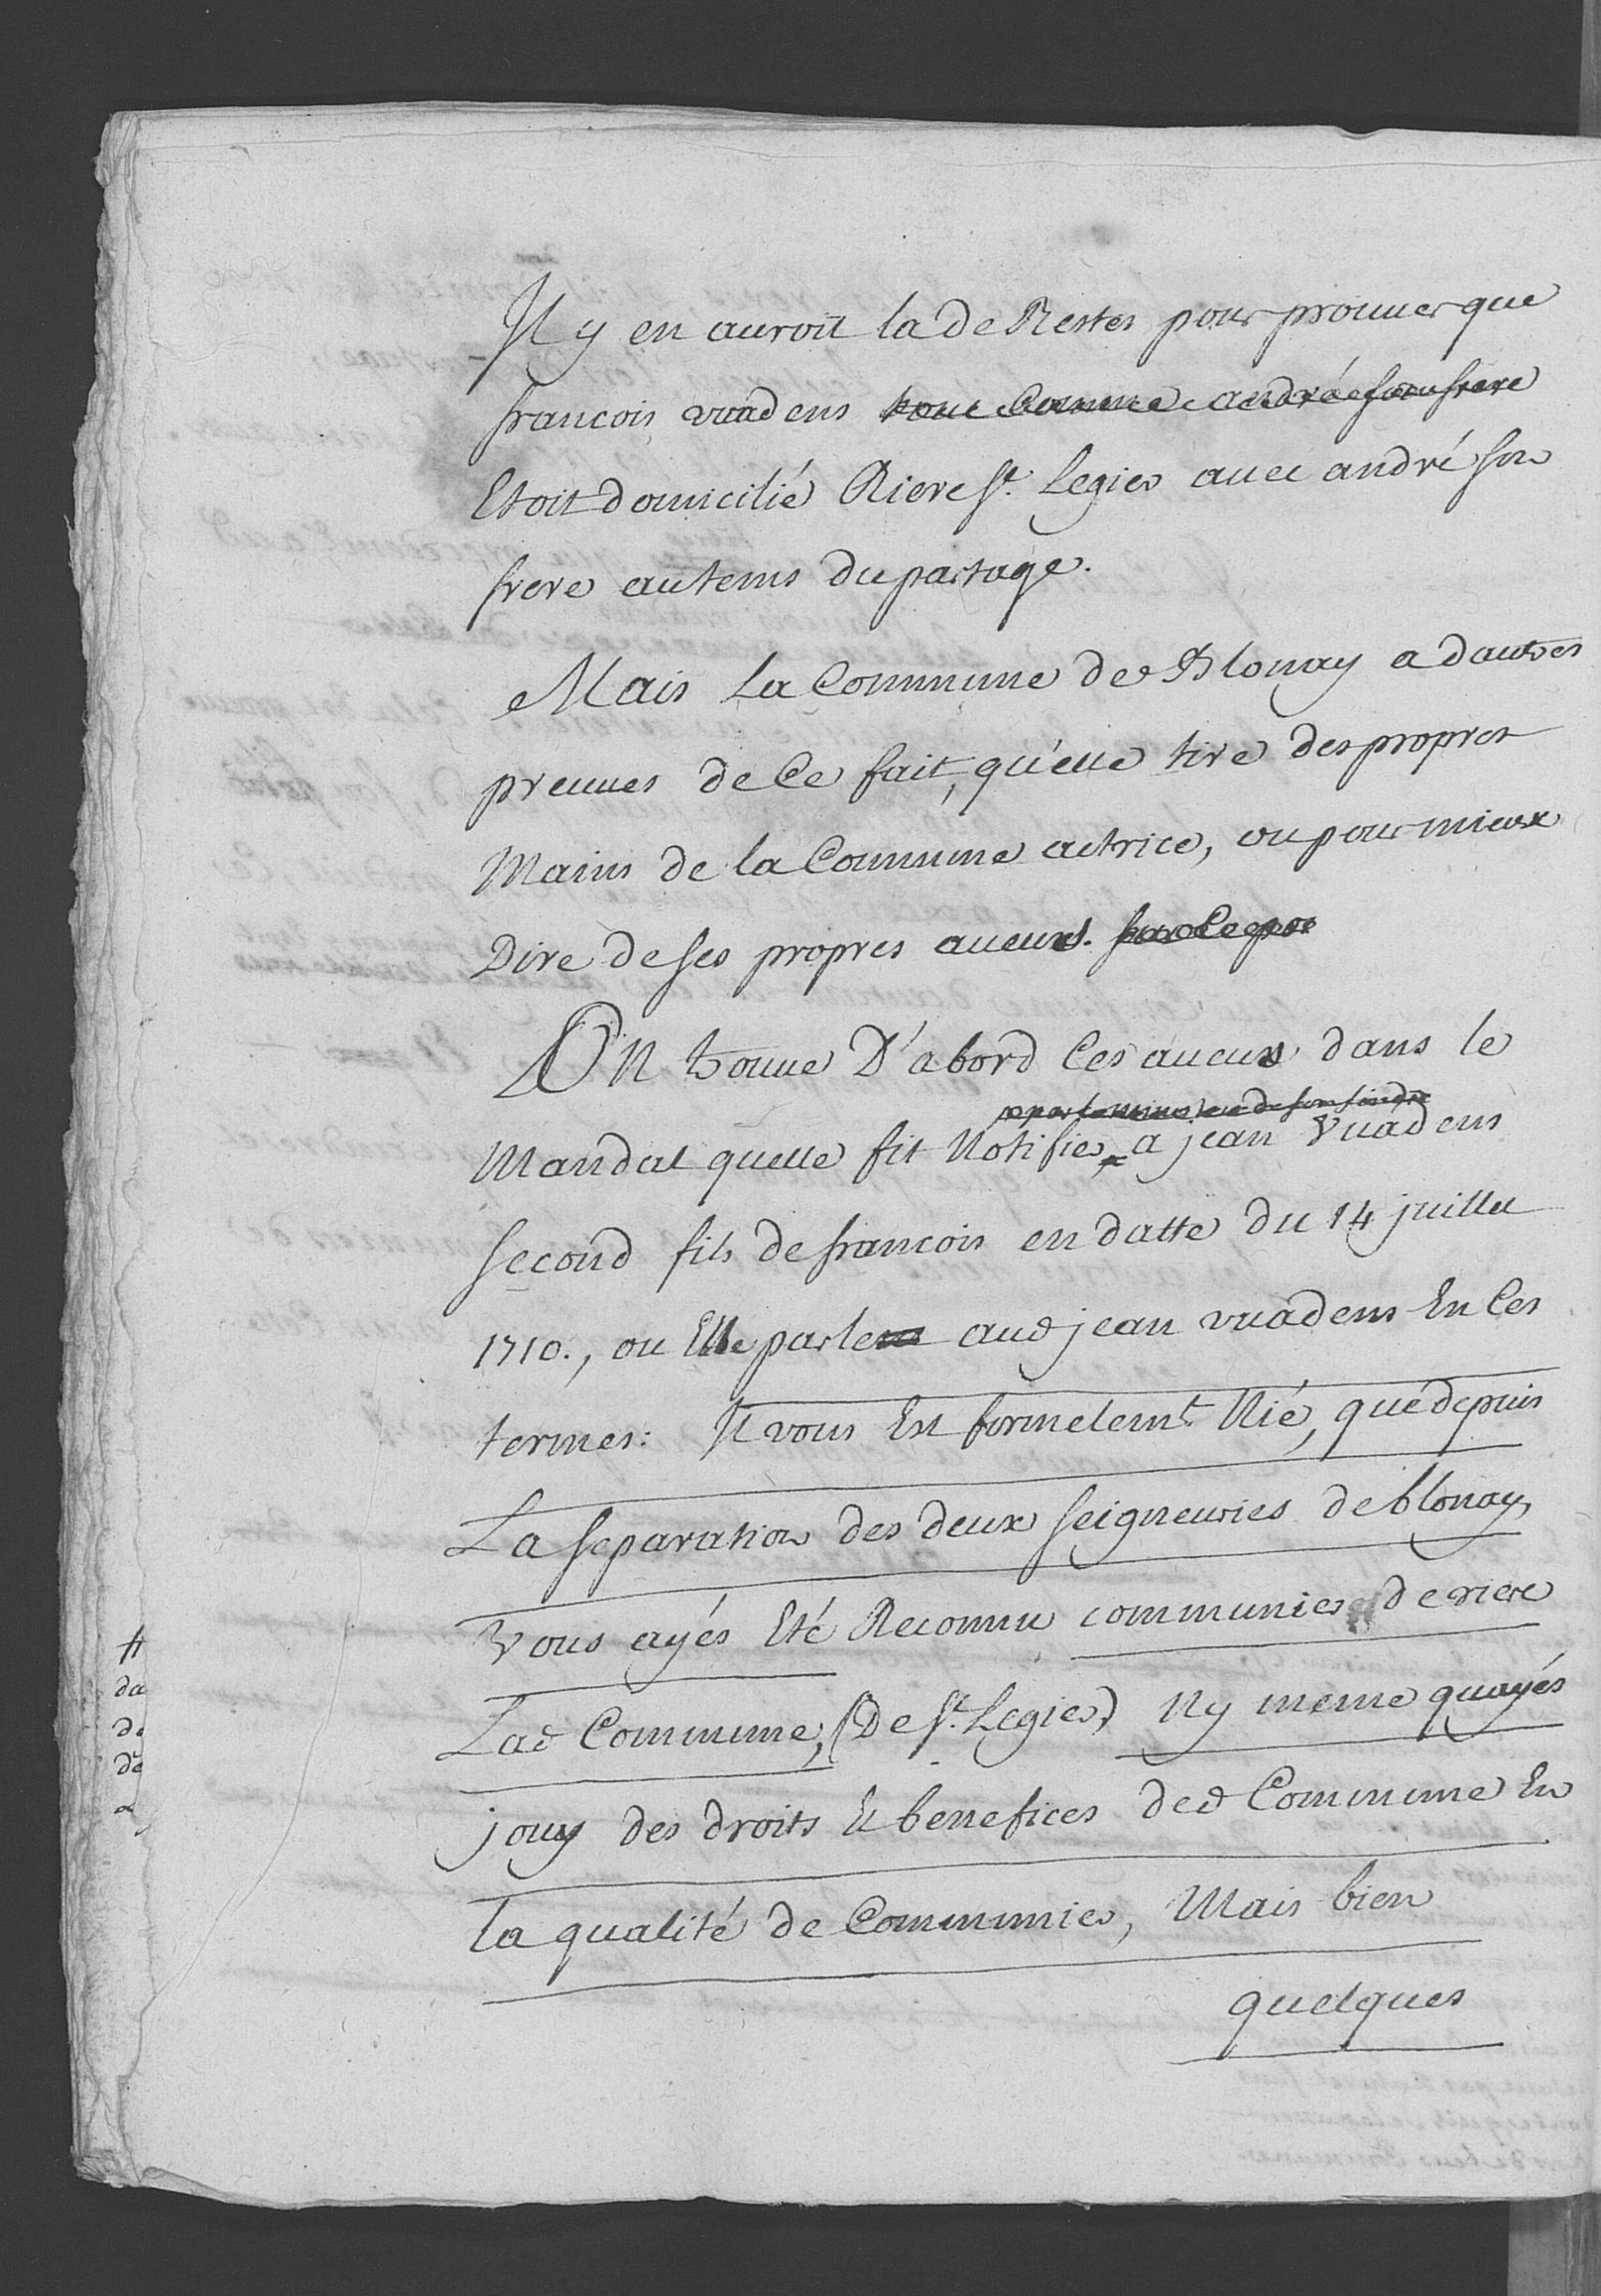 Il y en auroit la de Restes pour prouuer que
francois vuadens tout comme andré son frere
Etoit domicilié Riere St. Legier auec andré son
frere au tems du partage.
Mais La Commune de Blonay a dautres
preuues de Ce fait, qu'elle tire des propres
Mains de la Commune actrice, ou pour mieux
Dire de ses propres aueux.
On trouue D'abord Ces aueux dans le
Mandat quelle fit Notifier a jean Vuadens
second fils de francois en datte du 14 juillet
1710., ou Elle parle aud jean vuadens En Ces
termes: Il vous Est formelemt. Nié, que depuis
La separation des deux seigneuries de blonay,
Vous ayés Eté Reconnu communier de riere
Lad Commune, (De St. Legier) Ny meme quayés
jouy des droits Et benefices ded Commune En
la qualité de Communier, Mais bien
quelques
#
da
de
de